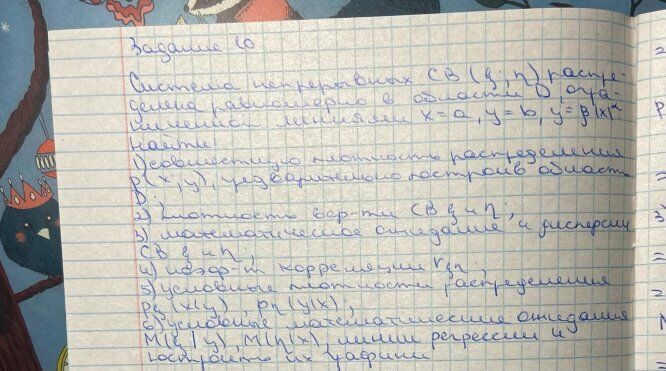 Задание 10
Система непрерывных СВ (ξ; η) распре-
делена равномерно в области D, огра-
ниченной линиями x=a, y=b, y=β|x|^α.
Найти:
1) совместную плотность распределения
p(x; y), предварительно построив область
D;
2) плотность вер-ти СВ ξ и η;
3) математическое ожидание и дисперсии
СВ ξ и η;
4) коэф-т корреляции rξη;
5) условные плотности распределения
pξ(x|y), pη(y|x);
6) условные математические ожидания
M(ξ|y), M(η|x), линии регрессии и
построить их графики
=
p
=
3)
=
=
M
=